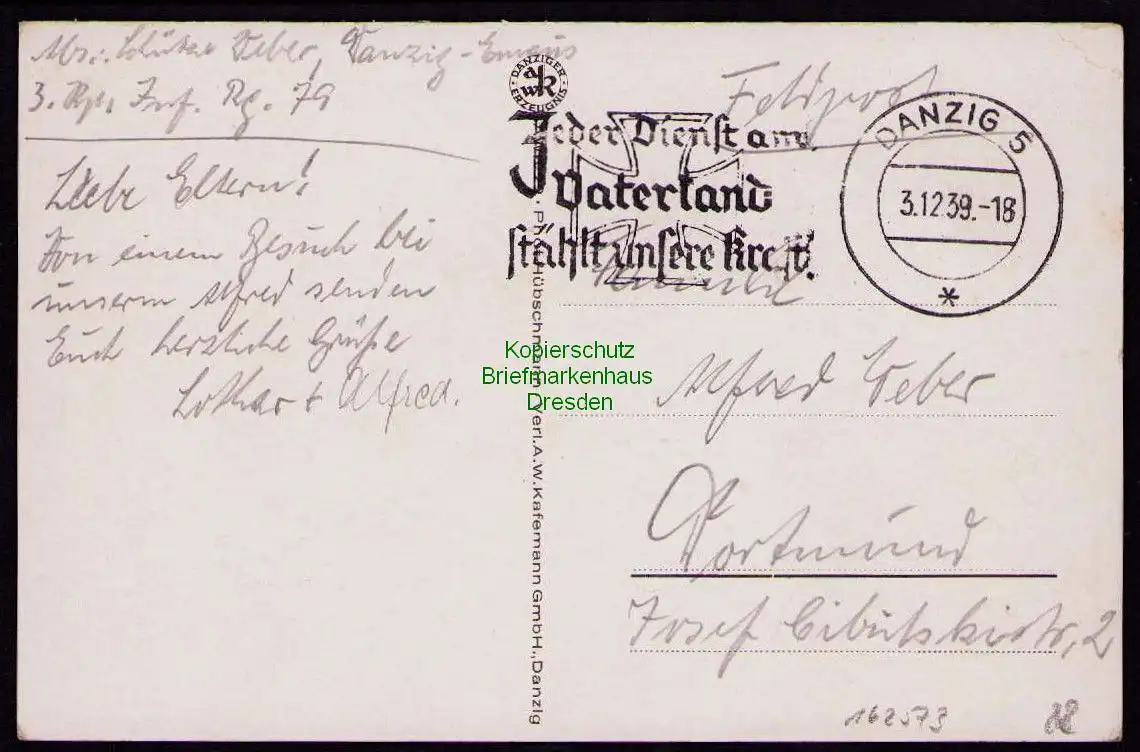 Abs.: Schütze Weber, Danzig-Emaus
3. Kp., Inf. Rg. 79
Liebe Eltern!
Von einem Besuch bei
unserm Alfred senden
Euch herzliche Grüße
Lothar + Alfred.
DANZIGER ERZEUGNIS
awk
Feldpost
Jeder Dienst am
Vaterland
stählt unsere Kraft.
DANZIG 5
3.12.39.-18
*
Familie
Alfred Weber
Dortmund
Josef 2
Hübschmann, Verl. A.W. Kafemann GmbH., Danzig
Kopierschutz
Briefmarkenhaus
Dresden
162573